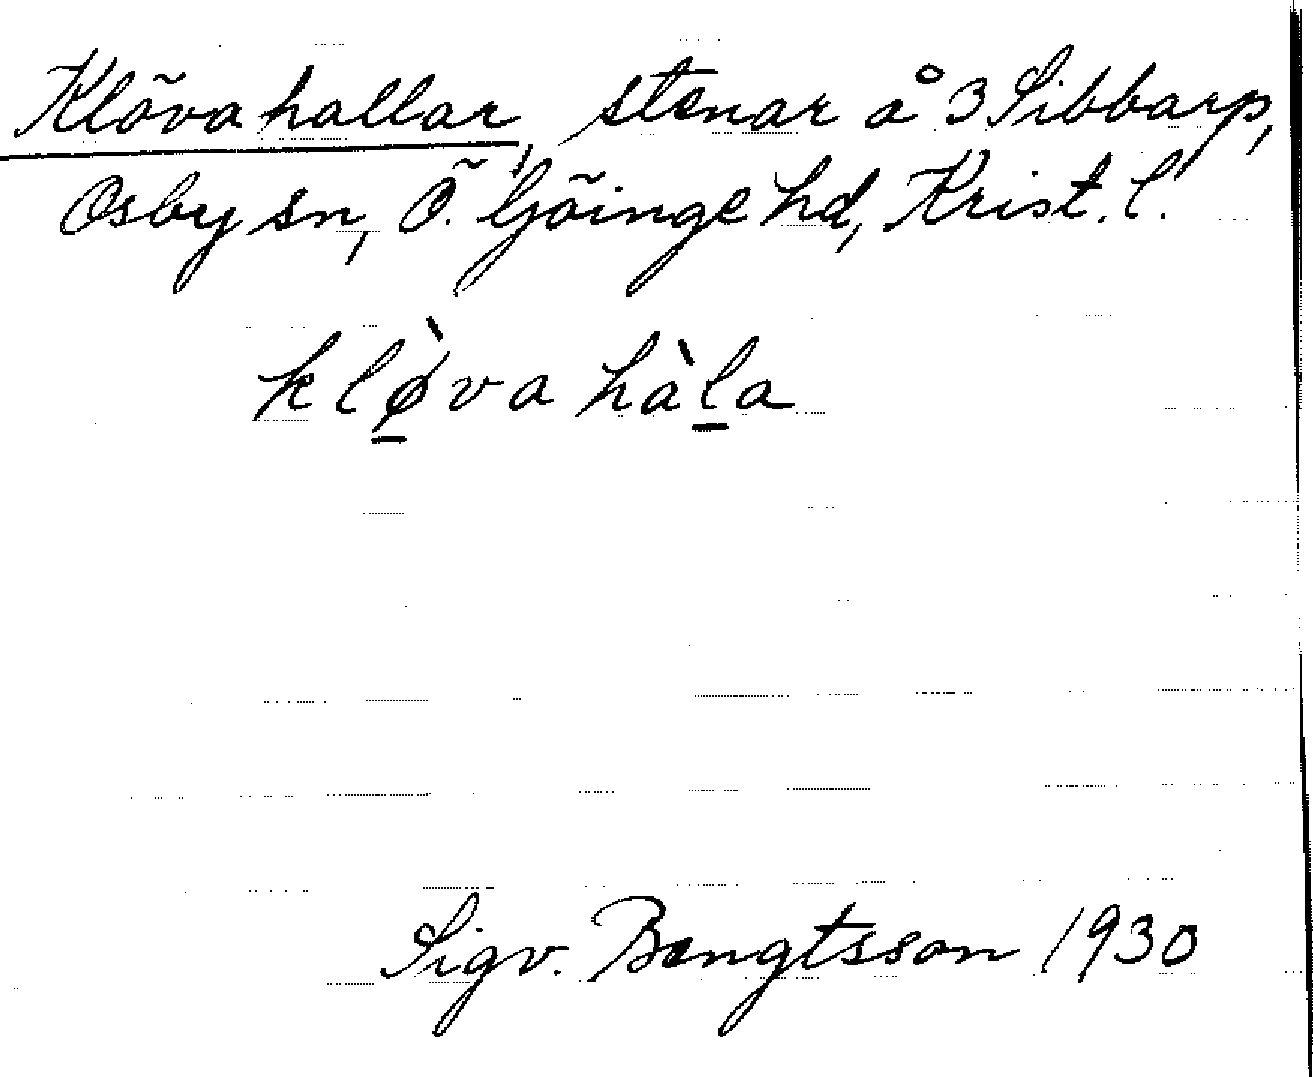 Klövahallar, stenar å 3 Sibbarp,
Osby sn, Ö. Göinge hd, Krist. l.
klø̠̀va hàl̠a
Sigv. Bengtsson 1930